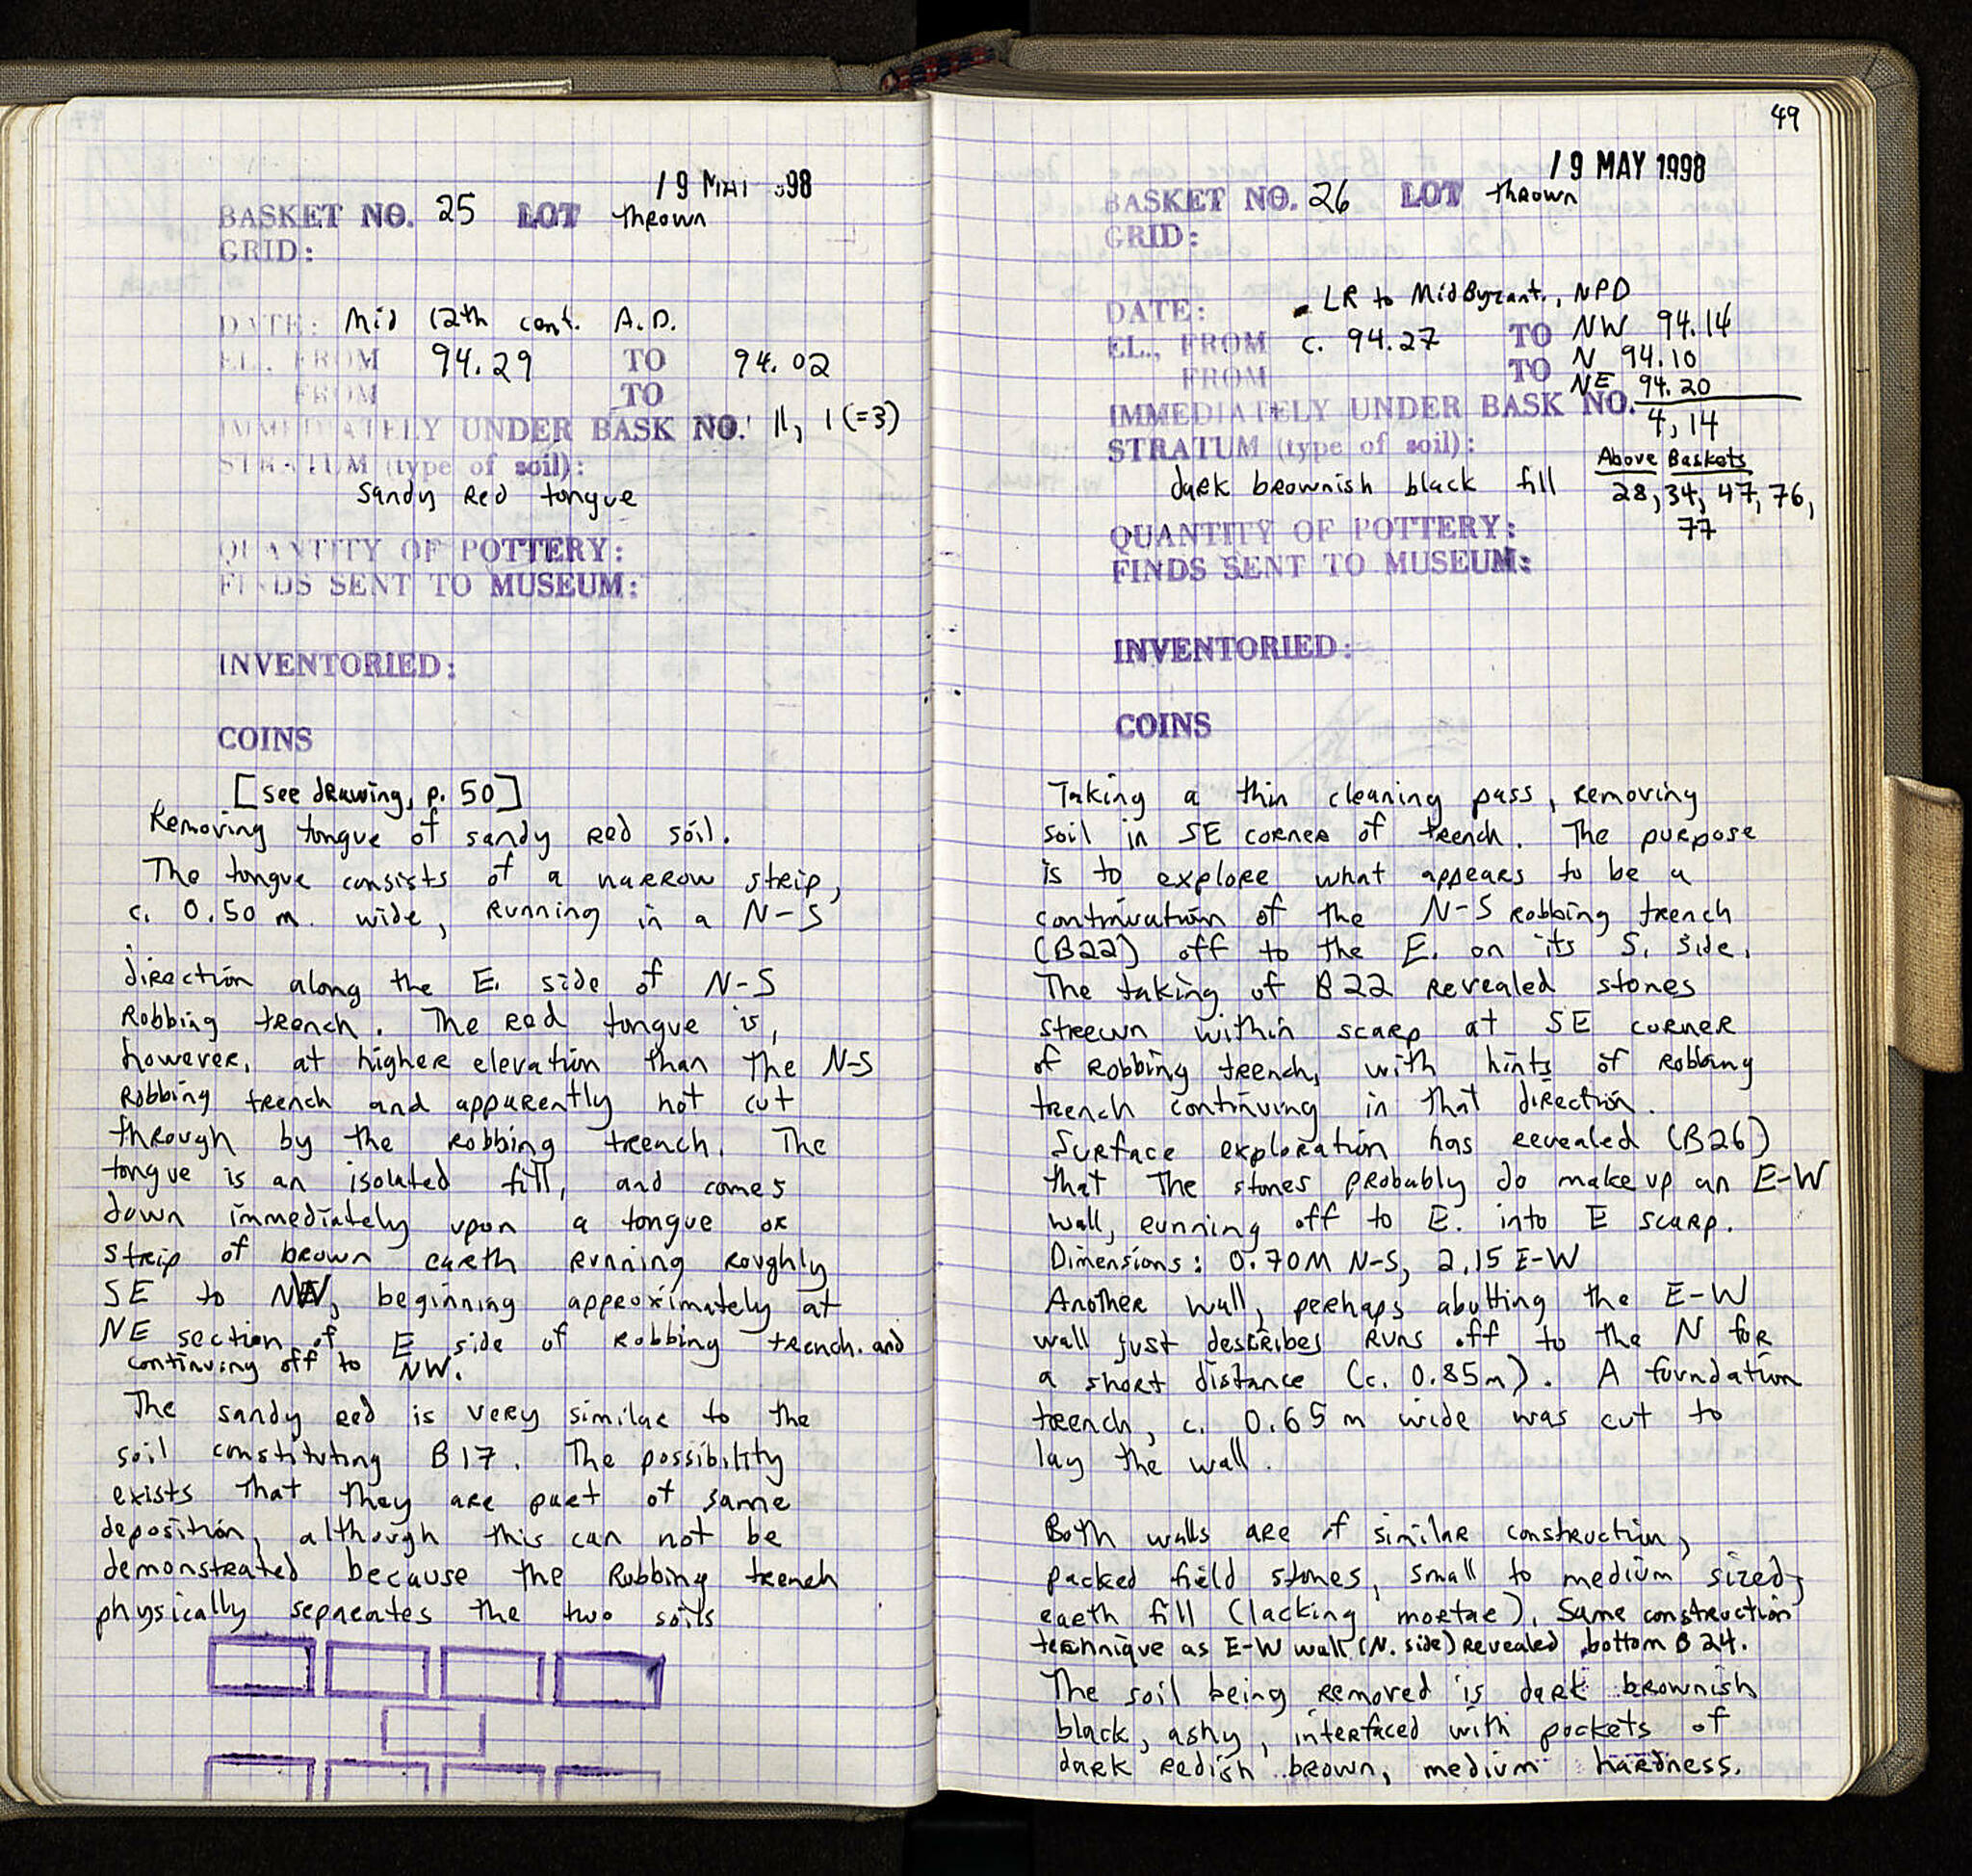 19 MAY 1998
BASKET NO. 25 LOT thrown
GRID:
DATE: Mid 12th cent. A.D.
EL., FROM 94.29 TO 94.02
FROM TO
IMMEDIATELY UNDER BASK NO. 11, 1(=3)
STRATUM (type of soil):
Sandy Red tongue
QUANTITY OF POTTERY:
FINDS SENT TO MUSEUM:
INVENTORIED:
COINS
[see drawing, p. 50]
Removing tongue of sandy red soil.
The tongue consists of a narrow strip,
c. 0.50 m. wide, running in a N-S
direction along the E. side of N-S
Robbing trench. The red tongue is,
however, at higher elevation than the N-S
Robbing trench and apparently not cut
through by the robbing trench. The
tongue is an isolated fill, and comes
down immediately upon a tongue or
strip of brown earth running roughly
SE to NW, beginning approximately at
NE section of E side of robbing trench. and
continuing off to NW.
The sandy red is very similar to the
soil constituting B17. The possibility
exists that they are part of same
deposition, although this can not be
demonstrated because the Robbing trench
physically separates the two soils
49
19 MAY 1998
BASKET NO. 26 LOT thrown
GRID:
DATE: LR to Mid Byzant., NPD
EL., FROM c. 94.27 TO NW 94.14
FROM TO N 94.10
NE 94.20
IMMEDIATELY UNDER BASK NO. 4, 14
STRATUM (type of soil):
dark brownish black fill
Above Baskets
28, 34, 47, 76,
77
QUANTITY OF POTTERY:
FINDS SENT TO MUSEUM:
INVENTORIED:
COINS
Taking a thin cleaning pass, removing
soil in SE corner of trench. The purpose
is to explore what appears to be a
continuation of the N-S robbing trench
(B22) off to the E. on its S. side.
The taking of B22 revealed stones
strewn within scarp at SE corner
of robbing trench, with hints of robbing
trench continuing in that direction.
Surface exploration has revealed (B26)
that the stones probably do make up an E-W
wall, running off to E. into E scarp.
Dimensions: 0.70M N-S, 2.15 E-W
Another wall, perhaps abutting the E-W
wall just described runs off to the N for
a short distance (c. 0.85m). A foundation
trench, c. 0.65 m wide was cut to
lay the wall.
Both walls are of similar construction,
packed field stones, small to medium sized,
earth fill (lacking mortar). Same construction
technique as E-W wall (N. side) revealed bottom B 24.
The soil being removed is dark brownish
black, ashy, interfaced with pockets of
dark redish brown, medium hardness.